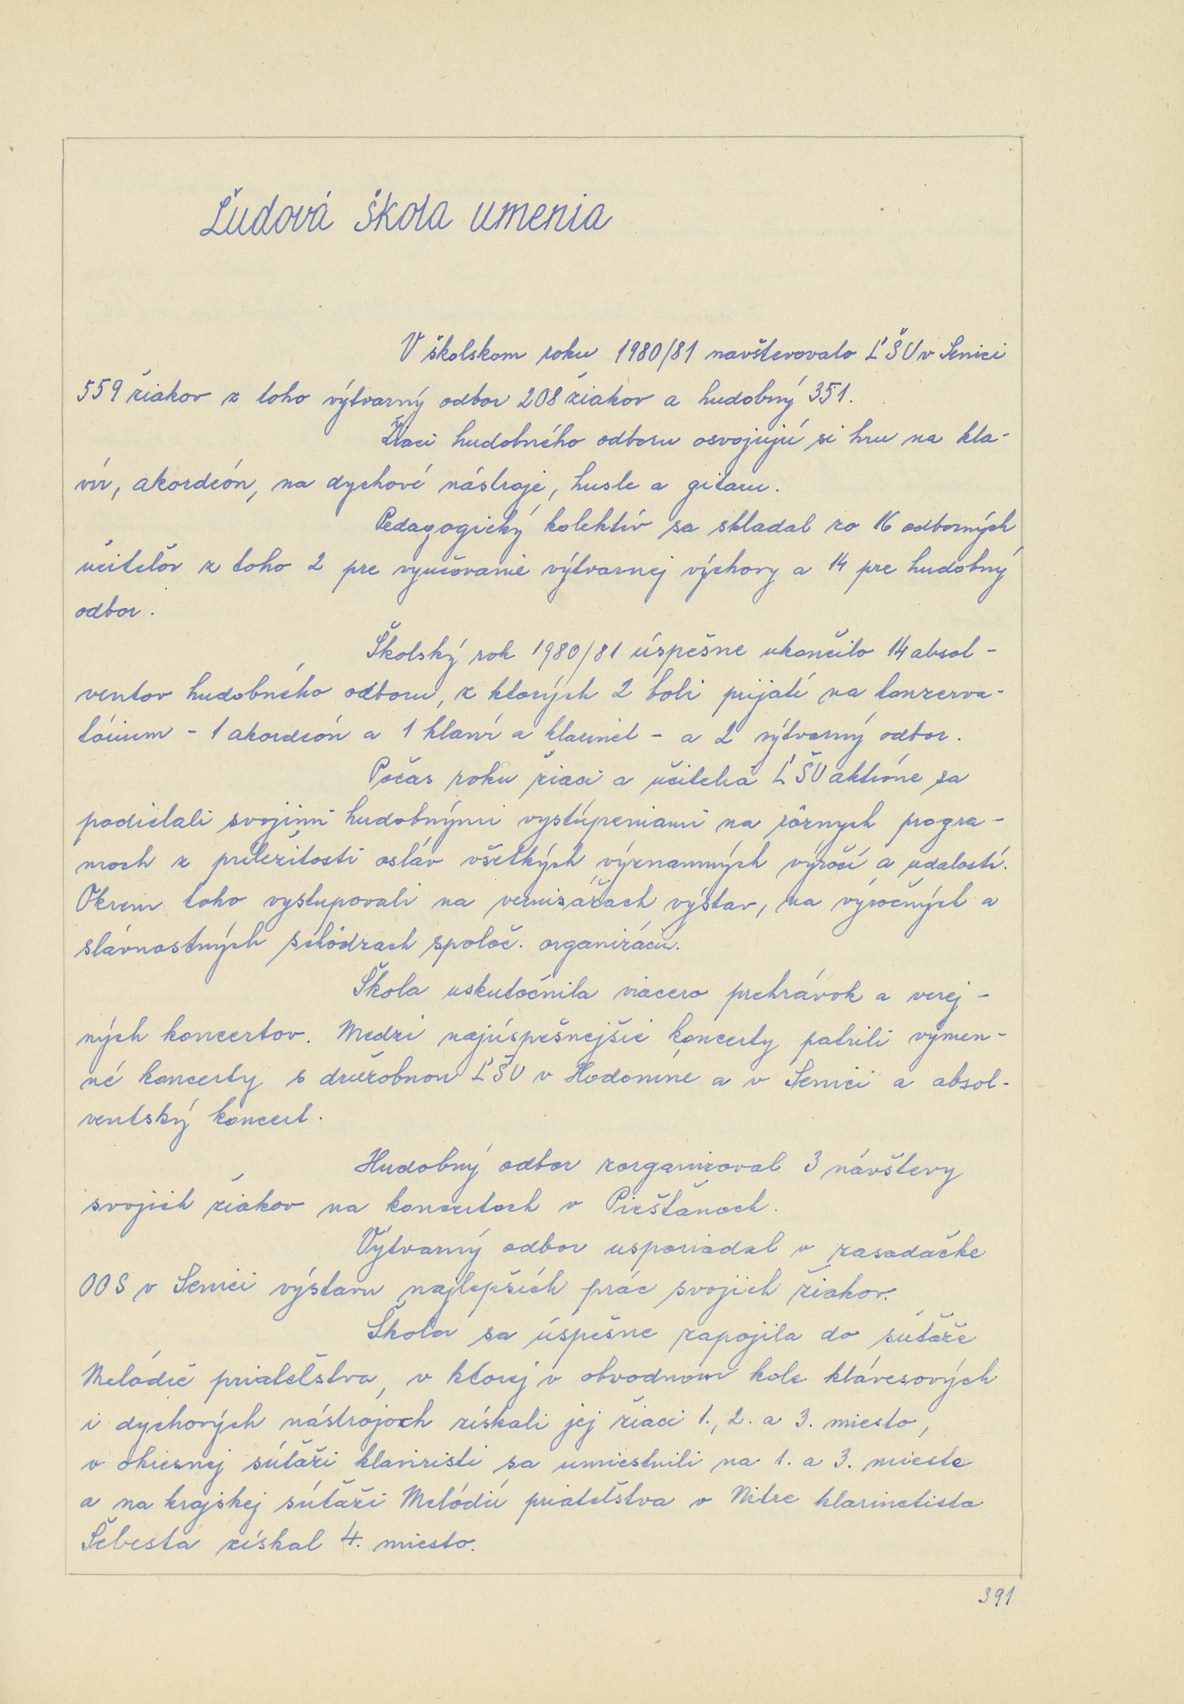 Ľudová škola umenia
V školskom roku 1980/81 navštevovalo ĽŠU v Senici
559 žiakov z toho výtvarný odbor 208 žiakov a hudobný 351.
Žiaci hudobného odboru osvojujú si hru na kla-
vír, akordeón, na dychové nástroje, husle a gitaru.
Pedagogický kolektív sa skladal zo 16 odborných
učiteľov z toho 2 pre vyučovanie výtvarnej výchovy a 14 pre hudobný
odbor.
Školský rok 1980/81 úspešne ukončilo 14 absol-
ventov hudobného odboru, z ktorých 2 boli prijatí na konzerva-
tórium - 1 akordeón a 1 klavír a klarinet - a 2 výtvarný odbor.
Počas roku žiaci a učitelia ĽŠU aktívne sa
podieľali svojimi hudobnými vystúpeniami na rôznych progra-
moch z príležitosti osláv všetkých významných výročí a udalostí.
Okrem toho vystupovali na vernisážach výstav, na výročných a
slávnostných schôdzach spoloč. organizácií.
Škola uskutočnila viacero prehrávok a verej-
ných koncertov. Medzi najúspešnejšie koncerty patrili výmen-
né koncerty s družobnou ĽŠU v Hodoníne a v Senici a absol-
ventský koncert.
Hudobný odbor zorganizoval 3 návštevy
svojich žiakov na koncertoch v Piešťanoch.
Výtvarný odbor usporiadal v zasadačke
OOS v Senici výstavu najlepších prác svojich žiakov.
Škola sa úspešne zapojila do súťaže
Melódie priateľstva, v ktorej v obvodnom kole klávesových
i dychových nástrojoch získali jej žiaci 1., 2. a 3. miesto,
v okresnej súťaži klaviristi sa umiestnili na 1. a 3. mieste
a na krajskej súťaži Melódií priateľstva v Nitre klarinetista
Šebesta získal 4. miesto.
391